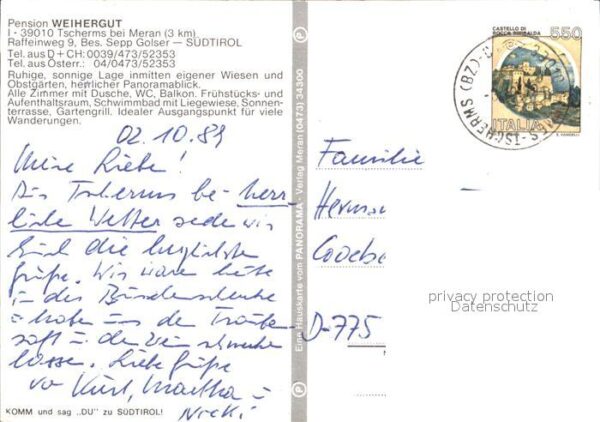 Pension WEIHERGUT
I - 39010 Tscherms bei Meran (3 km)
Raffeinweg 9, Bes. Sepp Golser – SÜDTIROL
Tel. aus D + CH: 0039/473/52353
Tel. aus Österr.: 04/0473/52353
Ruhige, sonnige Lage inmitten eigener Wiesen und
Obstgärten, herrlicher Panoramablick.
Alle Zimmer mit Dusche, WC, Balkon. Frühstücks- und
Aufenthaltsraum, Schwimmbad mit Liegewiese, Sonnen-
terrasse, Gartengrill. Idealer Ausgangspunkt für viele
Wanderungen.
02.10.89
Meine Liebe!
Aus Tscherms bei herr-
lichem Wetter
die herzlichsten
Grüße. Wir waren heute
in der
haben uns den Trauben
saft und den Wein schmecken
lassen. Liebe Grüße
von Kurt, Martha und
Nicki
KOMM und sag „DU" zu SÜDTIROL!
Eine Hauskarte vom PANORAMA - Verlag Meran (0473) 34300
CASTELLO DI
ROCCA SINIBALDA
550
ITALIA
TSCHERMS (BZ)
Familie
Herma
Goebe
D-775
privacy protection
Datenschutz